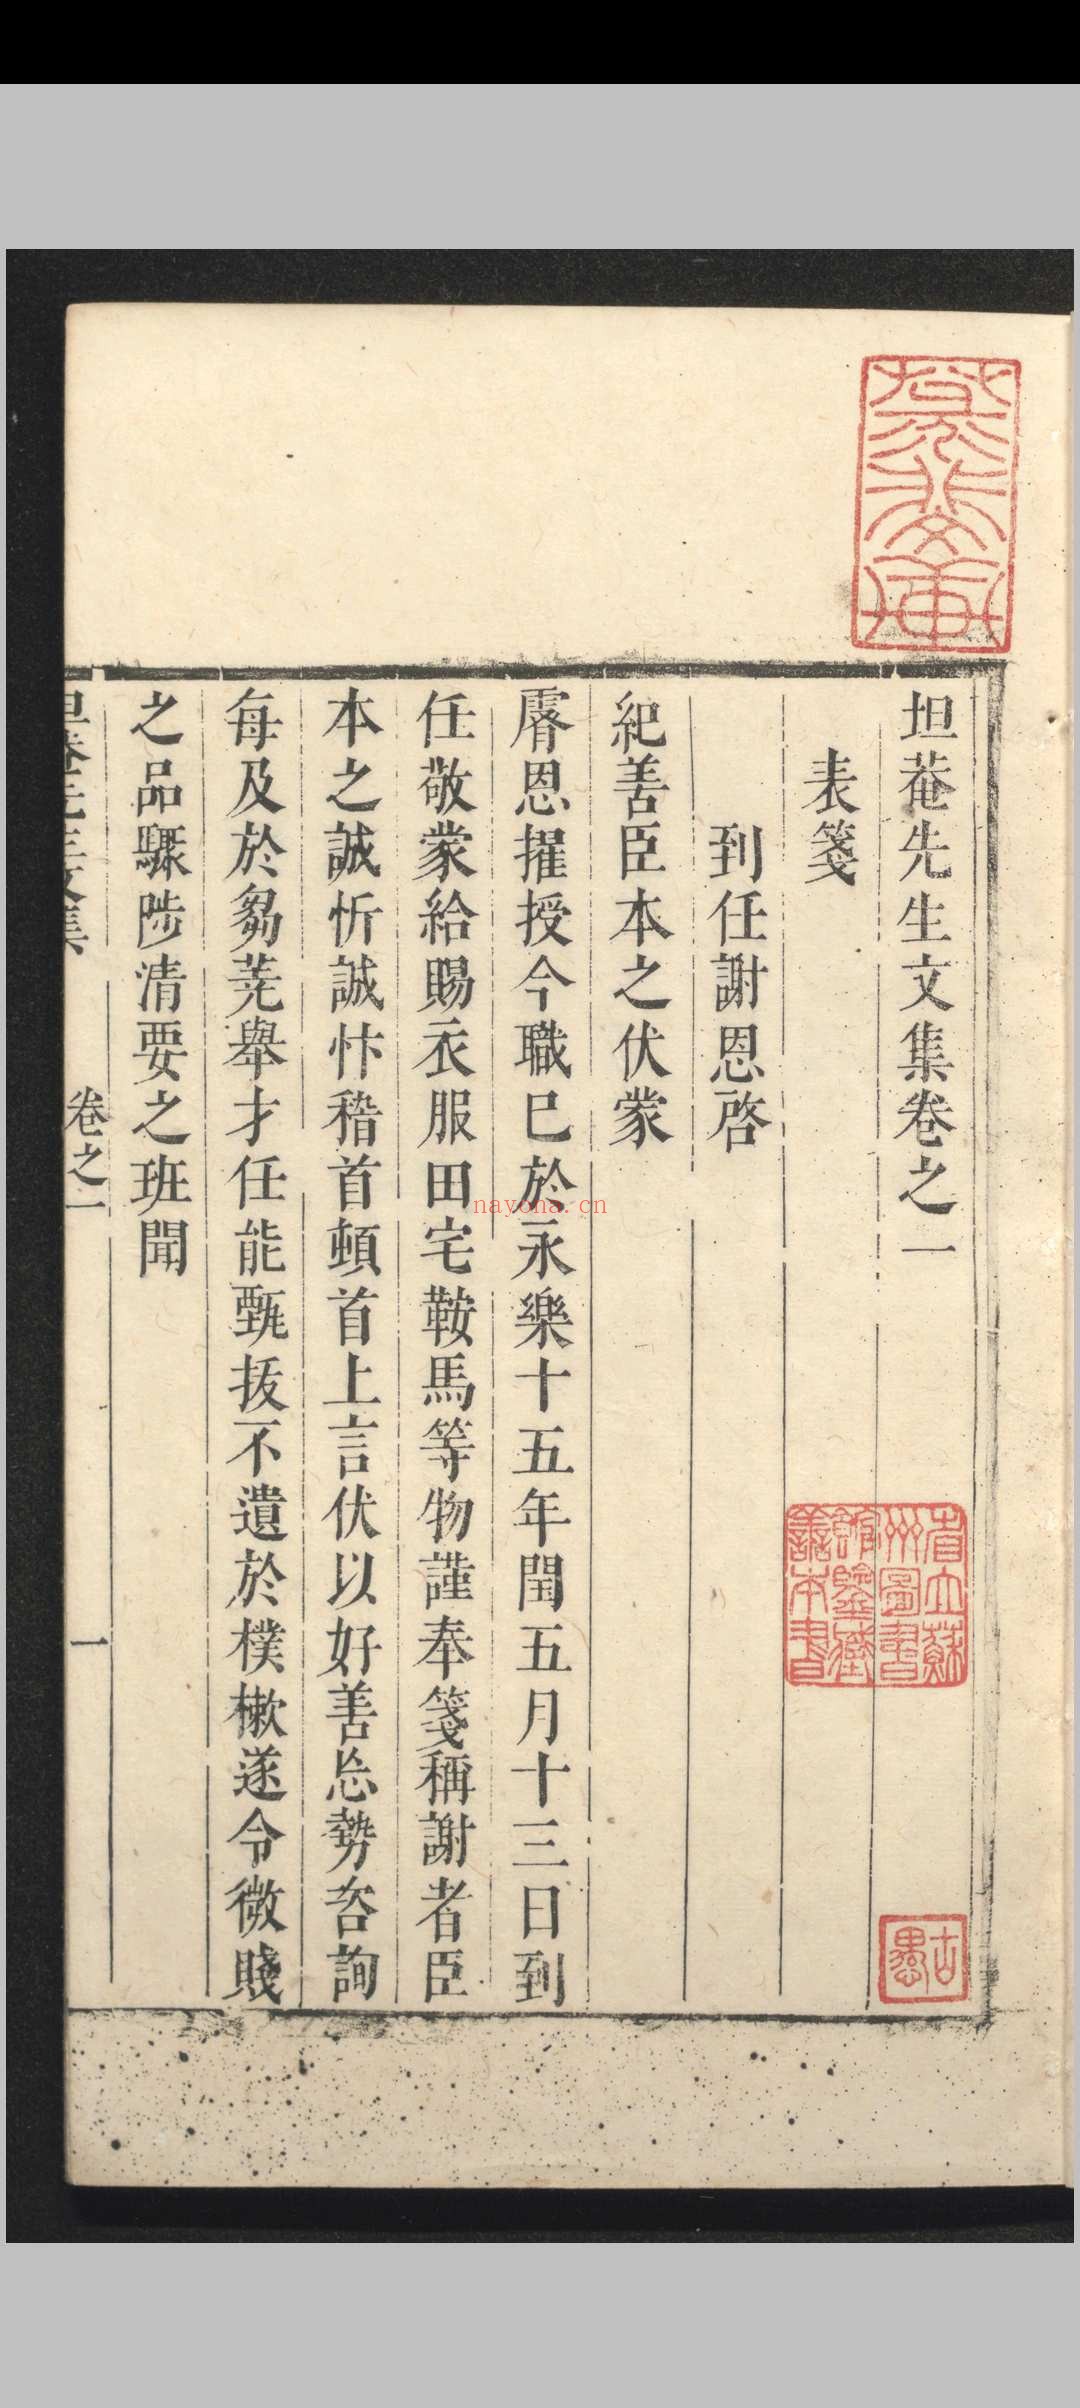 坦菴先生文集卷之一
表箋
到任謝恩啓
紀善臣本之伏蒙
睿恩擢授今職已於永樂十五年閏五月十三日到
任敬蒙給賜衣服田宅鞍馬等物謹奉箋稱謝者臣
本之誠忻誠忭稽首頓首上言伏以好善忘勢咨詢
每及於芻蕘舉才任能甄拔不遺於樸樕遂令微賤
之品驟陟清要之班聞
坦菴先生文集
卷之一
一
省立蘇
州圖書
館鑒藏
善本書
古愚
nayona.cn